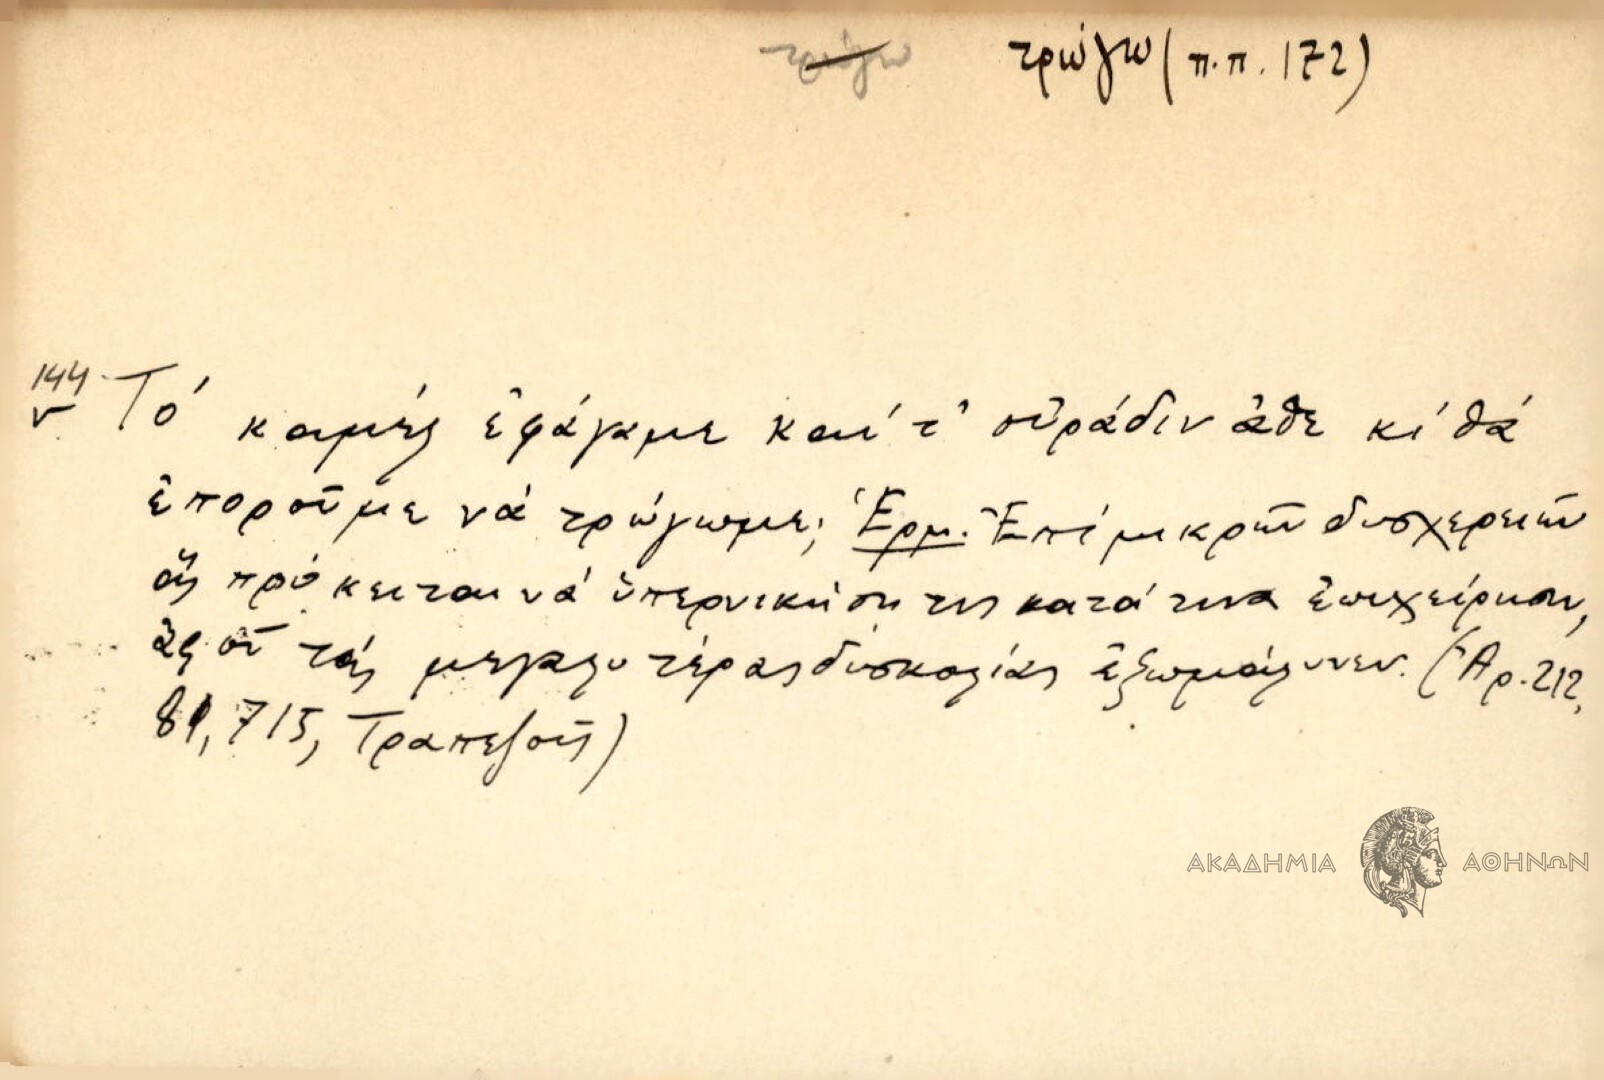 τρώγω τρώγω (π.π. 172)
144
ν Τό καμές ἐφάγαμε καί τ' οὐράδιν ἀθε κί θά
ἐποροῦμε νά τρώγωμε; Ἑρμ. Ἐπί μικρῶν δυσχερειῶν
ἅς πρόκειται νά ὑπερνικήσῃ τις κατά τινα ἐπιχείρησιν,
ἀφοῦ τάς μεγαλυτέρας δυσκολίας ἐξωμάλυνεν. (Ἀρ. 212,
81, 715, Τραπεζοῦς)
ΑΚΑΔΗΜΙΑ ΑΘΗΝΩΝ